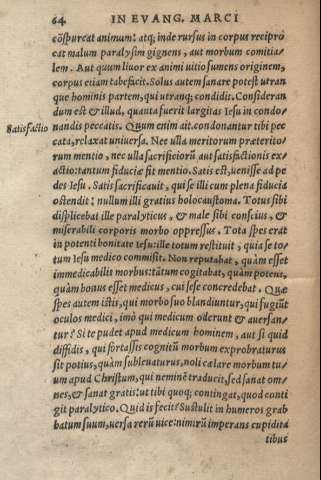 64 IN EVANG. MARCI
cōspurcat animum: atq; inde rursus in corpus recipro
cat malum paralysim gignens, aut morbum comitia/
lem. Aut quum liuor ex animi uitio sumens originem,
corpus etiam tabefacit. Solus autem sanare potest utran
que hominis partem, qui utranq; condidit. Consideran
dum est & illud, quanta fuerit largitas Iesu in condo/
Satisfactio nandis peccatis. Quum enim ait. condonantur tibi pec
cata, relaxat uniuersa. Nec ulla meritorum præterito/
rum mentio, nec ulla sacrificiorū aut satisfactionis ex/
actio: tantum fiduciæ fit mentio. Satis est, uenisse ad pe
des Iesu. Satis sacrificauit, qui se illi cum plena fiducia
ostendit: nullum illi gratius holocaustoma. Totus sibi
displicebat ille paralyticus, & male sibi conscius, &
miserabili corporis morbo oppressus. Tota spes erat
in potenti bonitate Iesu: ille totum restituit, quia se to/
tum Iesu medico commisit. Non reputabat, quàm esset
immedicabilis morbus: tātum cogitabat, quàm potens,
quàm bonus esset medicus, cui sese concredebat. Quæ
spes autem istis, qui morbo suo blandiuntur, qui fugiūt
oculos medici, imò qui medicum oderunt & auersan/
tur? Si te pudet apud medicum hominem, aut si quid
diffidis, qui fortassis cognitū morbum exprobraturus
sit potius, quàm subleuaturus, noli celare morbum tu/
um apud Christum, qui neminē traducit, sed sanat om/
nes, & sanat gratis: ut tibi quoq; contingat, quod conti
git paralytico. Quid is fecit? Sustulit in humeros grab
batum suum, uersa rerū uice: nimirū imperans cupidita
tibus